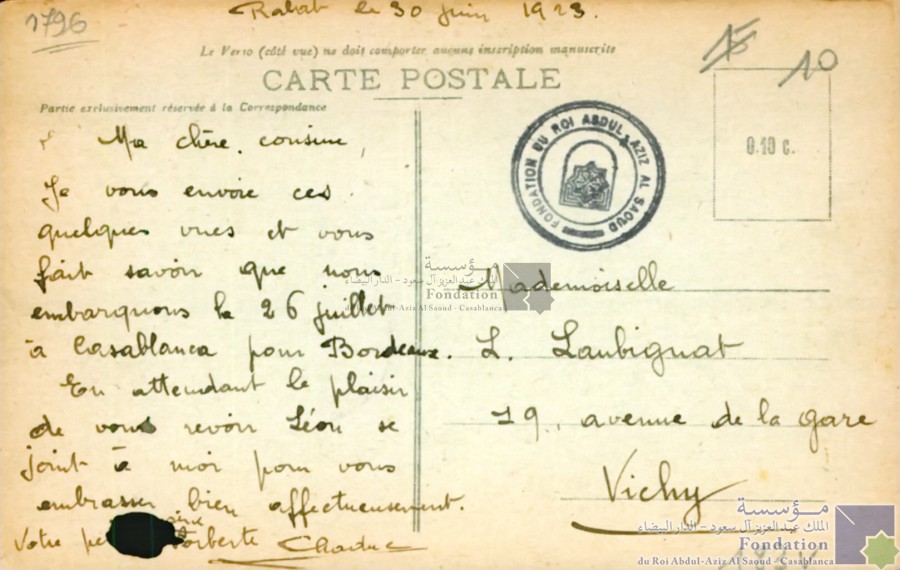 1796
Rabat le 30 juin 1923.
Le Verso (côté vue) ne doit comporter aucune inscription manuscrite
CARTE POSTALE
Partie exclusivement réservée à la Correspondance
Ma chère cousine,
Je vous envoie ces
quelques vues et vous
fait savoir que nous
embarquons le 26 juillet
à Casablanca pour Bordeaux.
En attendant le plaisir
de vous revoir Léon se
joint à moi pour vous
embrasser bien affectueusement.
Votre
15 10
0.10 c.
FONDATION DU ROI ABDUL AZIZ AL SAOUD
Mademoiselle
L. Laubignat
19, avenue de la gare
Vichy
مؤسسة
الملك عبد العزيز آل سعود - الدار البيضاء
Fondation
du Roi Abdul-Aziz Al Saoud - Casablanca
مؤسسة
الملك عبد العزيز آل سعود - الدار البيضاء
Fondation
du Roi Abdul-Aziz Al Saoud - Casablanca